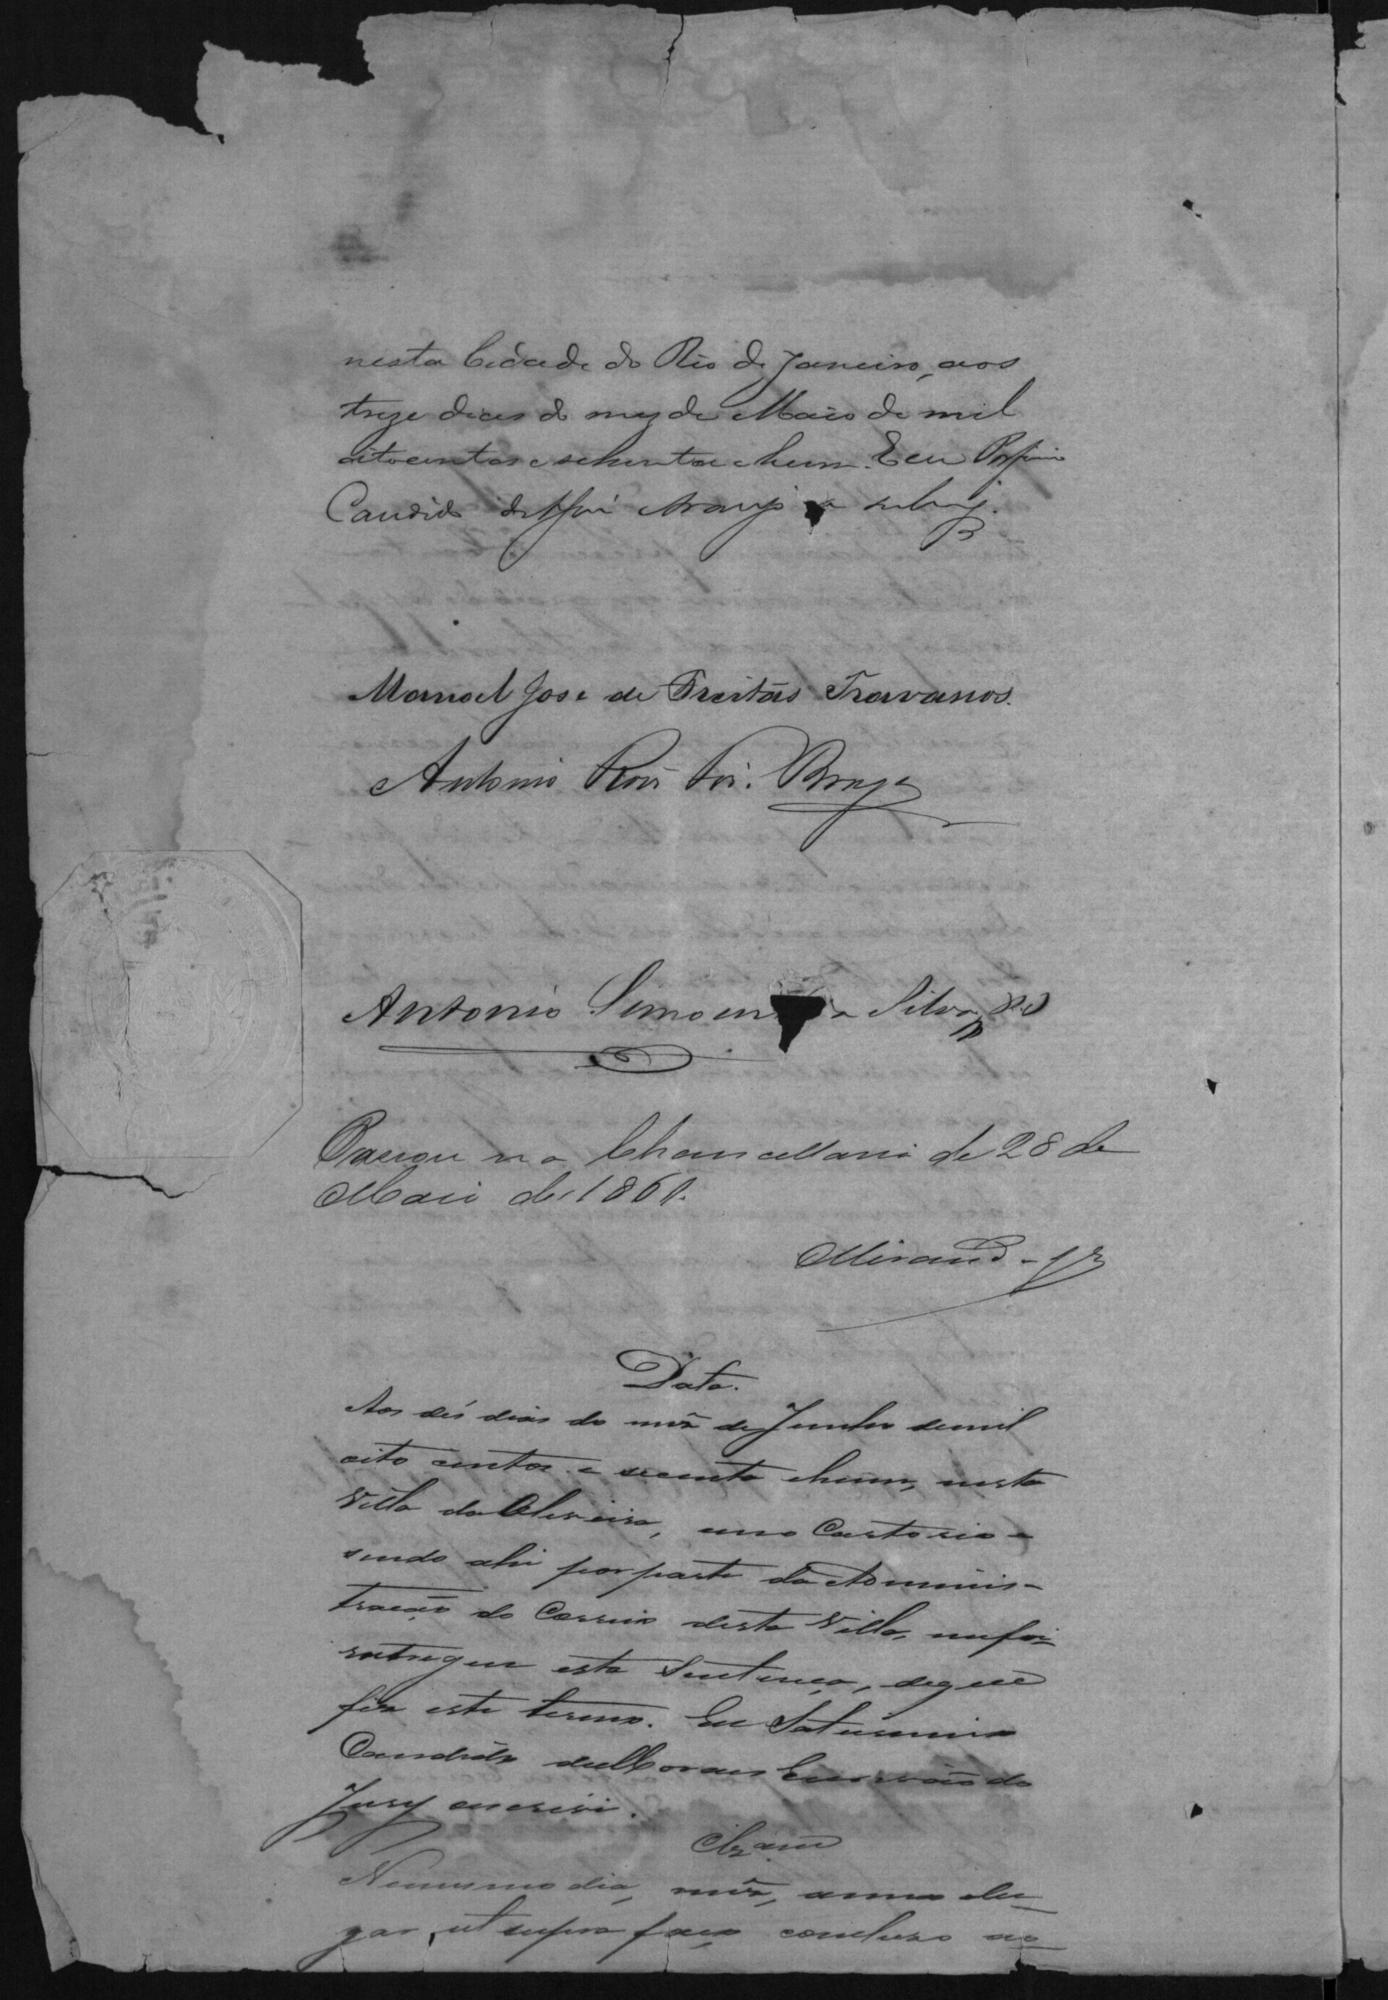 nesta Cidade do Rio de Janeiro, aos
treze dias do mez de Maio de mil
oitocentos e sessenta e hum. E eu
Candido de Araujo a
Manoel Jose de Freitas Travassos.
Antonio Roiz Braga
Antonio Simoens da Silva
Passou na Chancellaria de 28 de
Maio de 1861.
Mirand
Data.
Aos dés dias do mêz de Junho de mil
oito centos e secenta e hum, nesta
Villa da Oliveira, em o Cartorio e
sendo ahi por parte da Adminis-
tração do Correio desta Villa, me foi
entregue esta Sentença, de que
fiz este termo. Eu Saturnino
Candido de Moraes Escrivão do
Jury escrevi.
No mesmo dia, mêz, anno e lu-
gar ut supra faço concluso ao